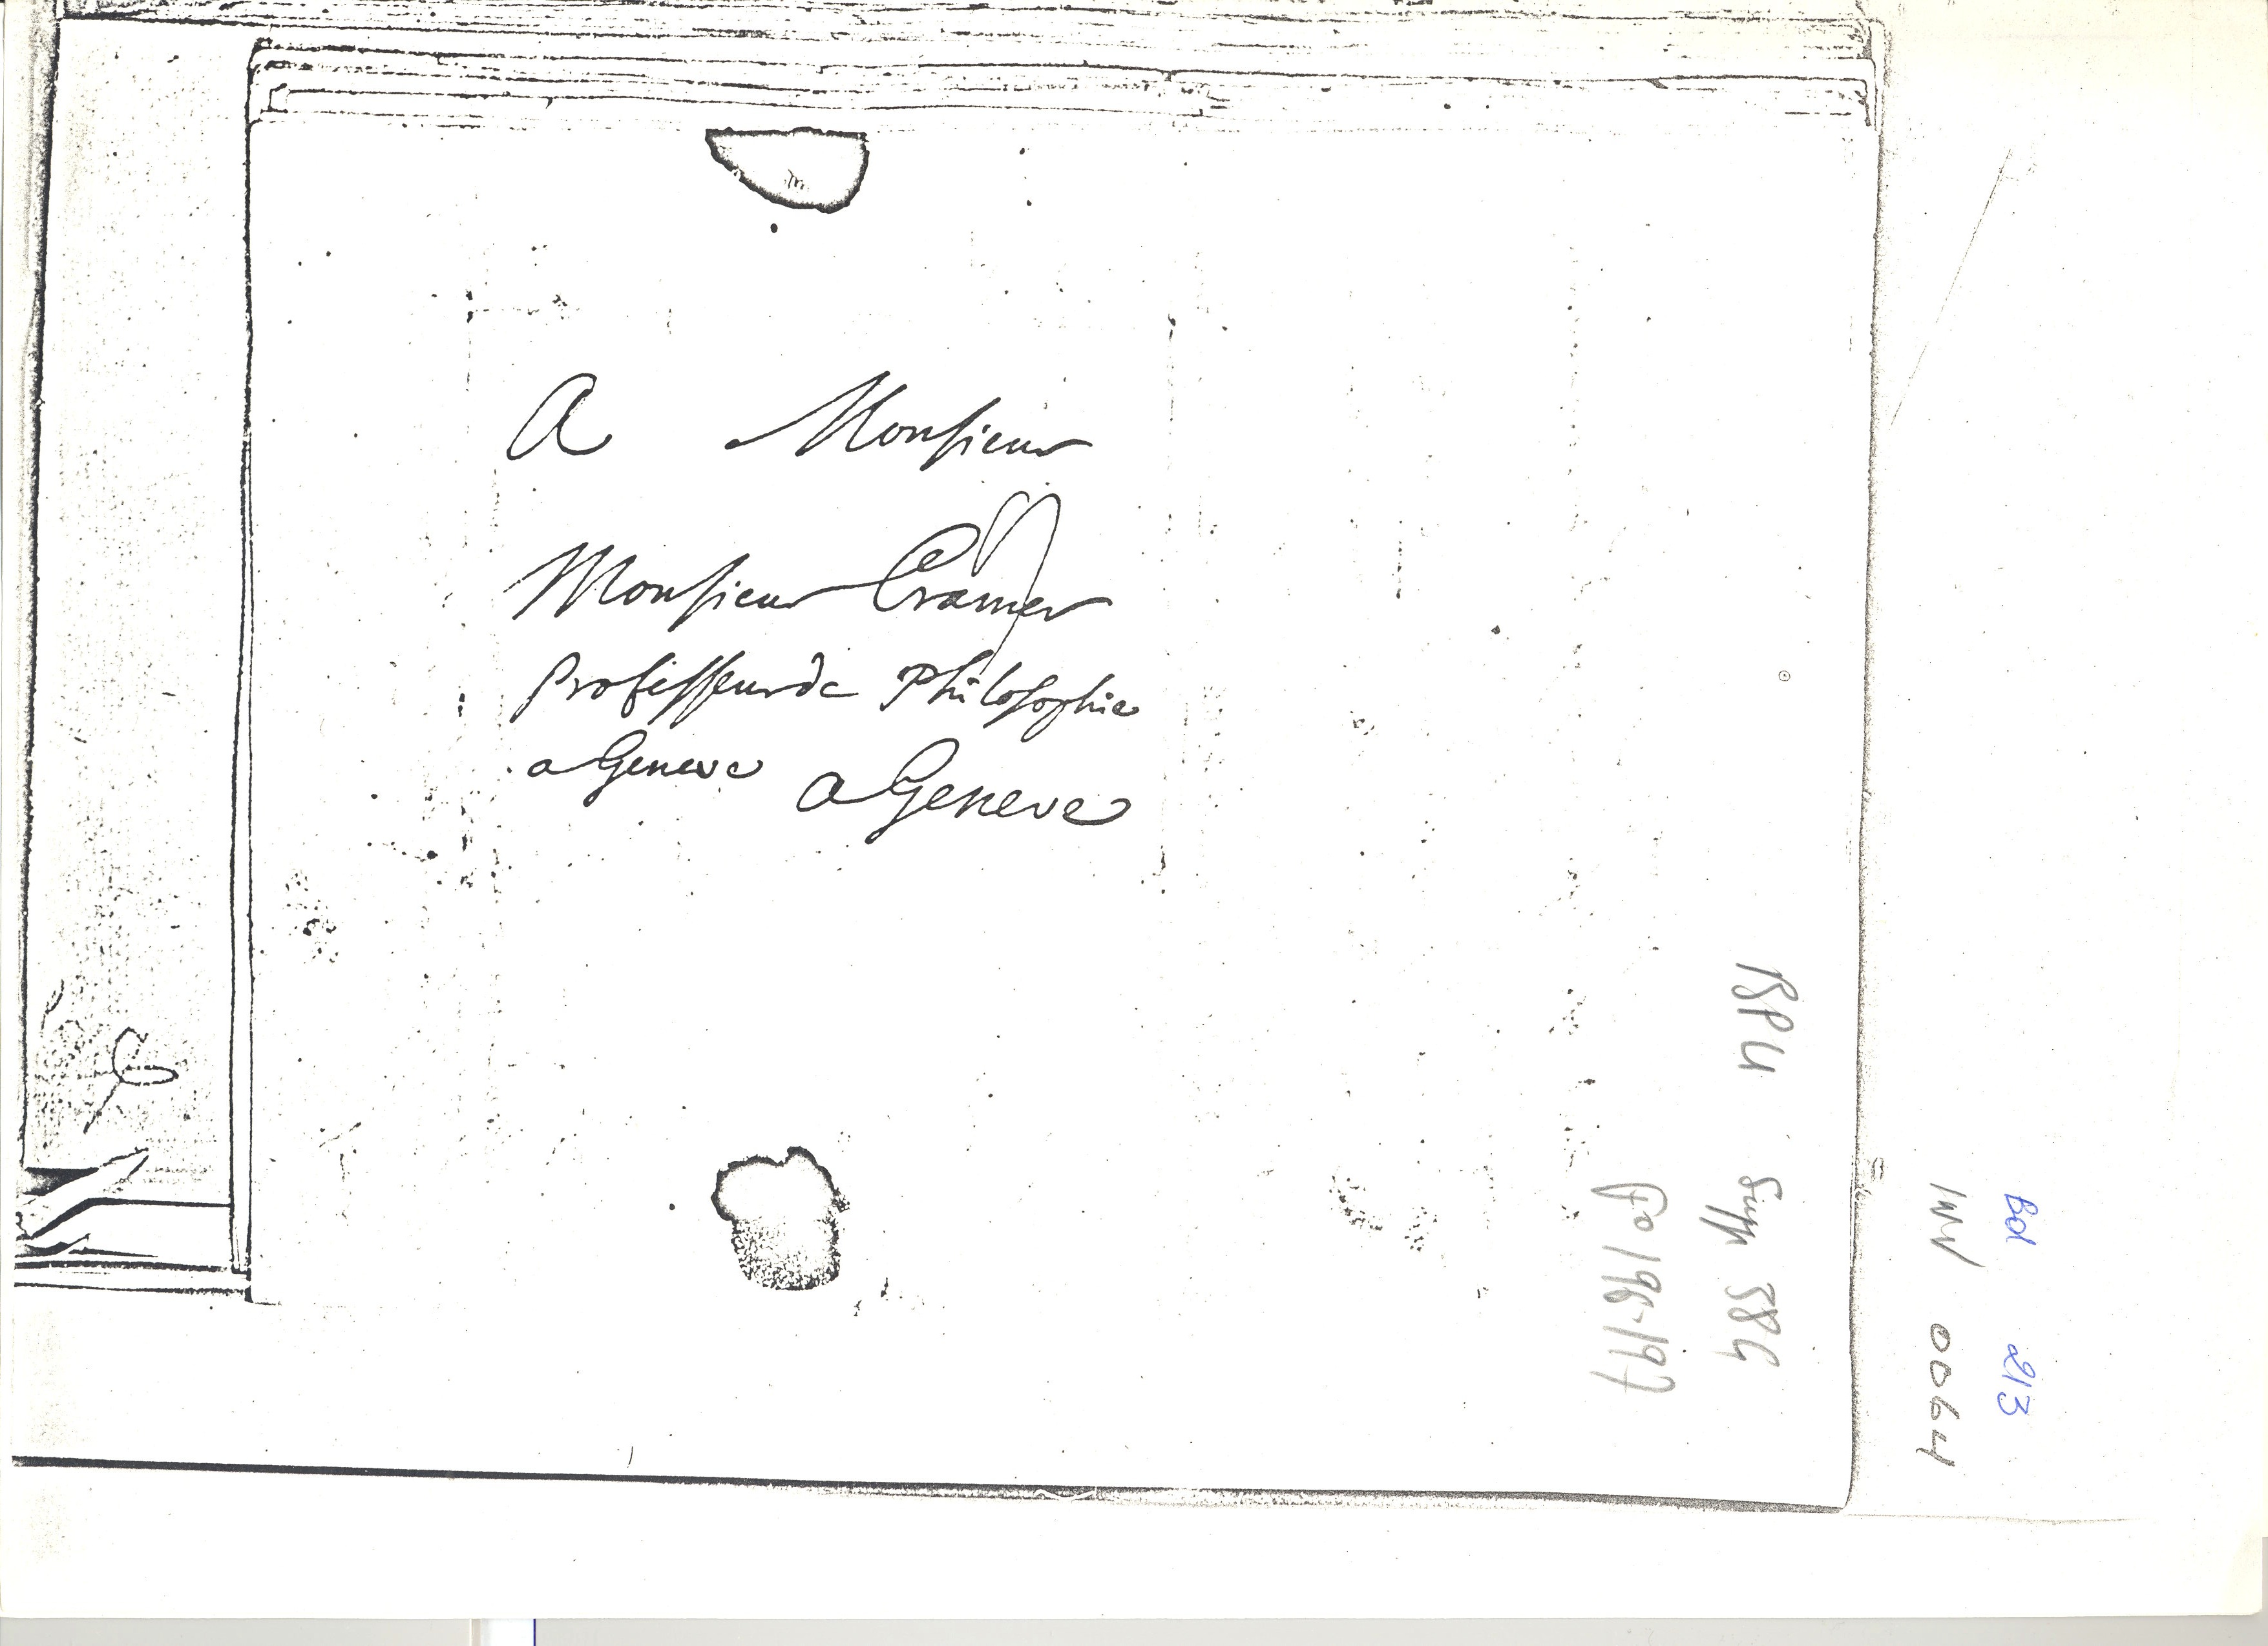 A Monsieur
Monsieur Cramer
Professeur de Philosophie
a Geneve
a Geneve
BPU Supp 384
fo 196-197
Bd 213
WV 0064